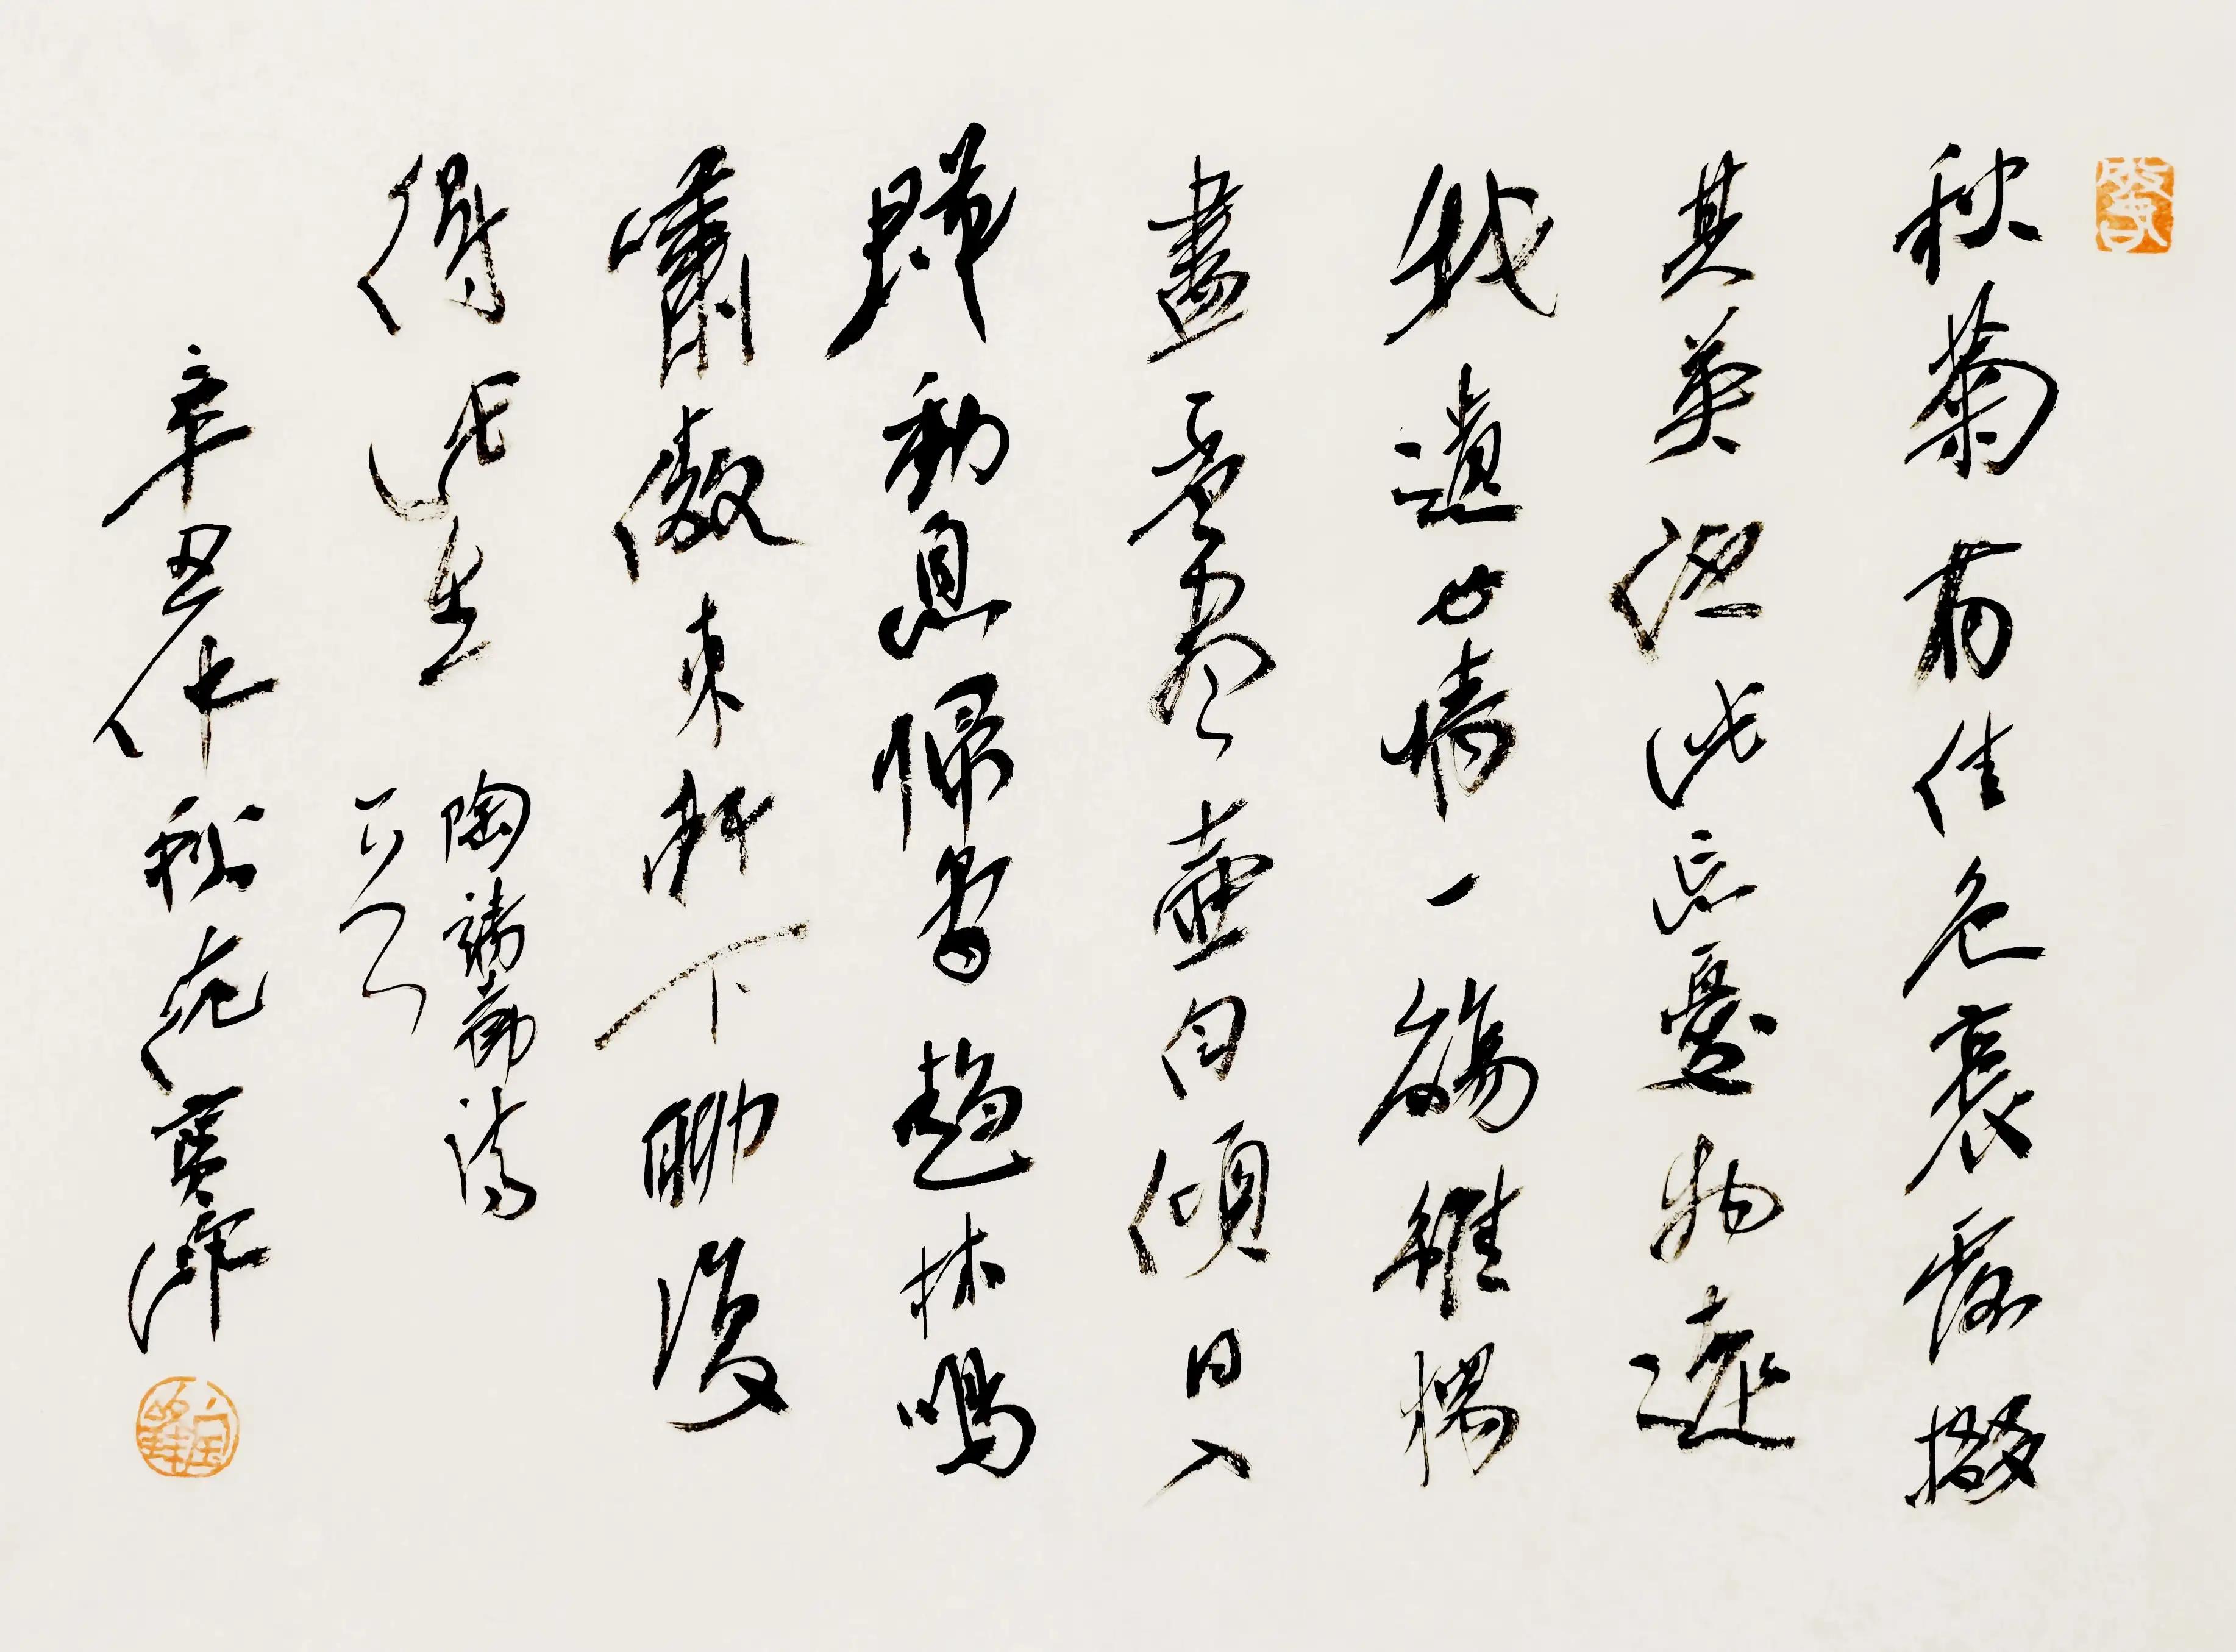 秋菊有佳色裛露掇
其英泛此忘憂物遠
我遺世情一觴雖獨
盡盃尽壺自傾日入
群動息歸鳥趨林鳴
嘯傲東軒下聊復
得此生
陶靖節詩
一首
辛丑仲秋